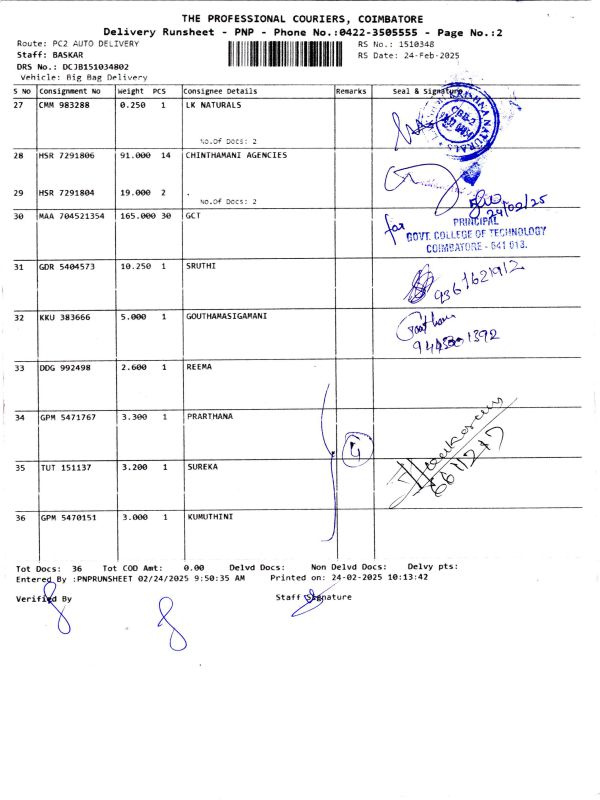 THE PROFESSIONAL COURIERS, COIMBATORE
Delivery Runsheet - PNP - Phone No.:0422-3505555 - Page No.:2
Route: PC2 AUTO DELIVERY RS No.: 1510348
Staff: BASKAR RS Date: 24-Feb-2025
DRS No.: DCJB151034802
Vehicle: Big Bag Delivery
S No Consignment No Weight PCS Consignee Details Remarks Seal & Signature
27 CMM 983288 0.250 1 LK NATURALS
No.Of Docs: 2
KRISHNA NATURALS
28 HSR 7291806 91.000 14 CHINTHAMANI AGENCIES
29 HSR 7291804 19.000 2 .
No.Of Docs: 2
24/02/25
30 MAA 704521354 165.000 30 GCT
for PRINCIPAL
GOVT. COLLEGE OF TECHNOLOGY
COIMBATORE - 641 013.
31 GDR 5404573 10.250 1 SRUTHI
9361621912
32 KKU 383666 5.000 1 GOUTHAMASIGAMANI
33 DDG 992498 2.600 1 REEMA
34 GPM 5471767 3.300 1 PRARTHANA
4
35 TUT 151137 3.200 1 SUREKA
36 GPM 5470151 3.000 1 KUMUTHINI
Tot Docs: 36 Tot COD Amt: 0.00 Delvd Docs: Non Delvd Docs: Delvy pts:
Entered By :PNPRUNSHEET 02/24/2025 9:50:35 AM Printed on: 24-02-2025 10:13:42
Verified By Staff Signature